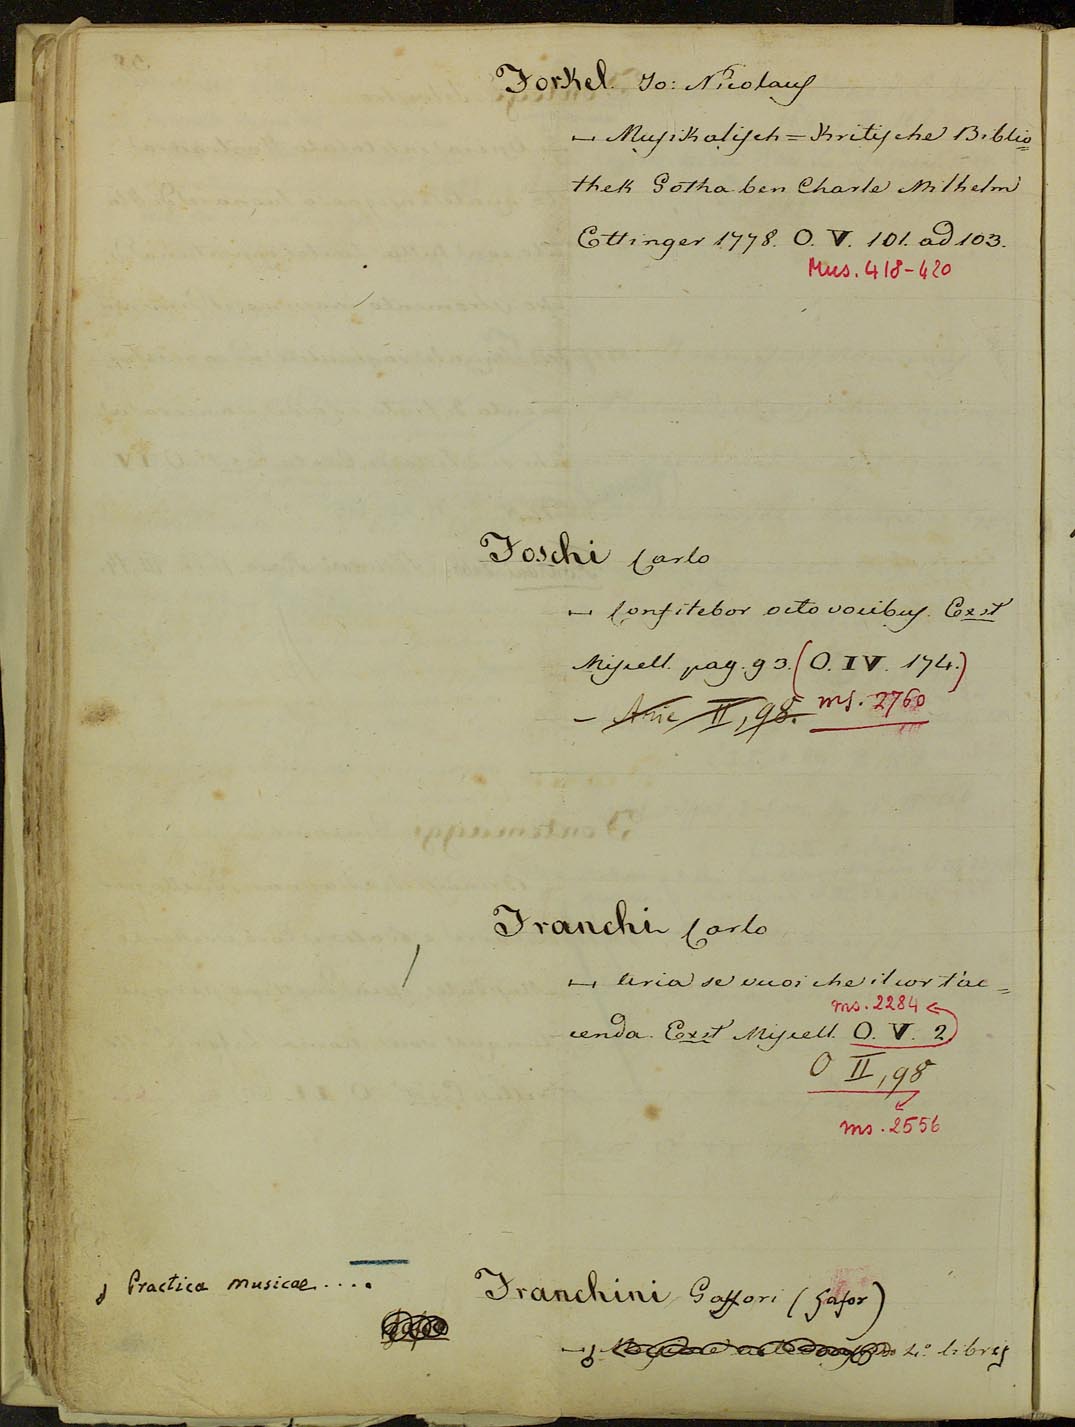 Forkel. Jo: Nicolaus
Musikalisch = Kritische Biblio=
thek Gotha ben Charle Wilhelm
Ettinger 1778. O. V. 101. ad 103.
Mus. 418-420
Foschi Carlo
Confitebor octo vocibus. Exst
Miscell. pag. 93. (O. IV. 174.)
ms. 2760
– Arie II, 98.
Franchi Carlo
Aria se vuoi che il cor t'ac=
ms. 2284
cenda. Exst Miscell. O. V. 2
O II, 98
ms. 2556
Practica musicae....
Franchini Gaffori (Gafor)
4º libris